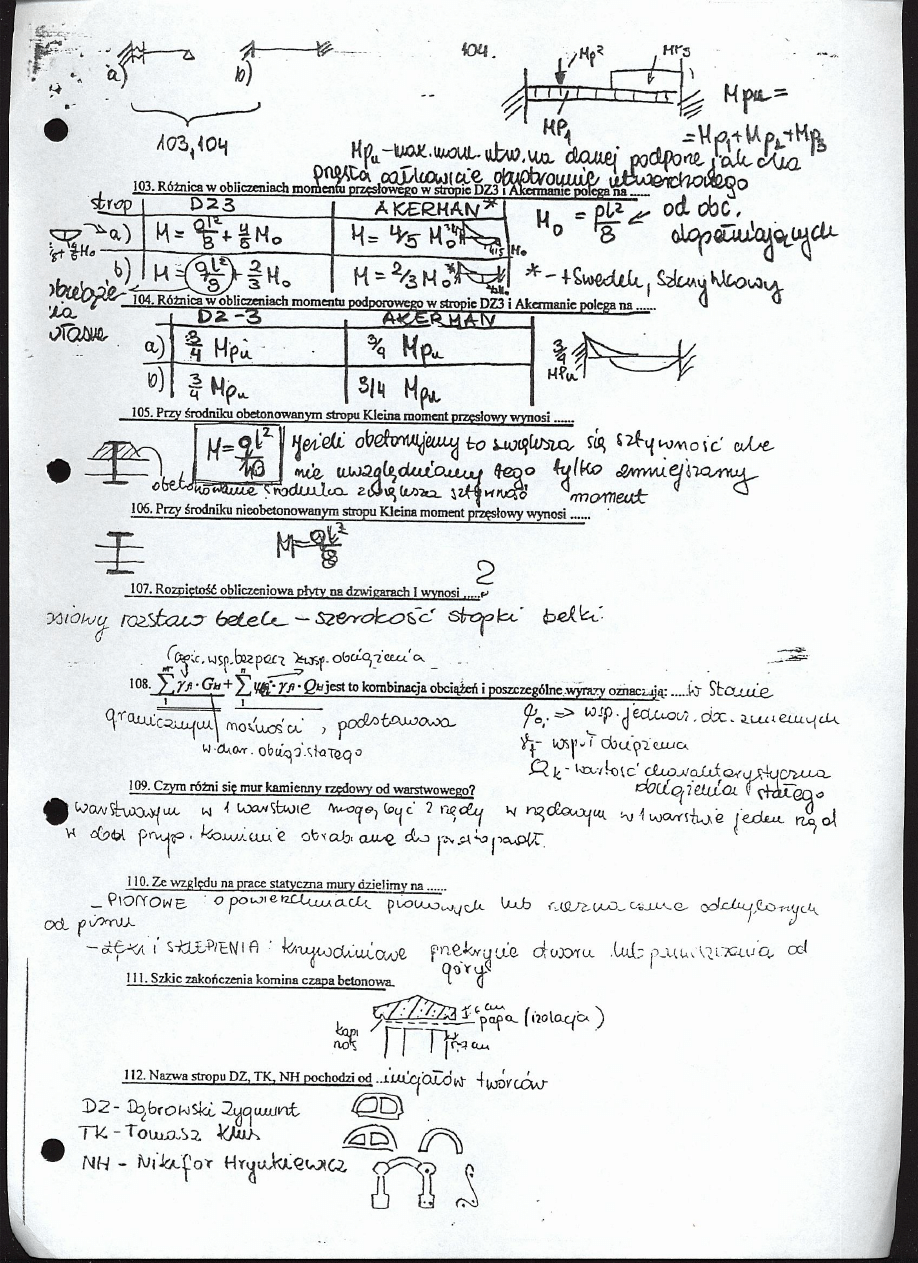 a) b) 104. Mp2 Mp3
Mpu =
103, 104 MP1 = Mp1 + Mp2 + Mp3
Mpu - max. mom. utw. na danej podporze jak dla
pręta całkowicie obustronnie utwierdzonego
103. Różnica w obliczeniach momentu przęsłowego w stropie DZ3 i Akermanie polega na ......
strop DZ3 AKERMAN*
M0 = pl²/8 od obc.
dopełniających
a) M = ql²/8 + 4/5 M0 M = 4/5 M0
b) M = ql²/8 + 2/3 M0 M = 2/3 M0
* - + Swedeck, Szkrzynkowy
104. Różnica w obliczeniach momentu podporowego w stropie DZ3 i Akermanie polega na ......
własne
DZ-3 AKERMAN
a) 3/4 Mpu 3/4 Mpu 3/4 Mpu
b) 3/4 Mpu 3/4 Mpu
105. Przy środniku obetonowanym stropu Kleina moment przęsłowy wynosi ......
M = ql²/10 Jeżeli obetonujemy to zwiększa się sztywność ale
nie uwzględniamy tego tylko zmniejszamy
moment
obetonowanie środnika zwiększa sztywność
106. Przy środniku nieobetonowanym stropu Kleina moment przęsłowy wynosi ......
M = ql²/8
107. Rozpiętość obliczeniowa płyty na dzwigarach I wynosi ...... 2
osiowy rozstaw belek – szerokość stopki belki
częśc. wsp. bezpiecz. wsp. obciążenia
108. Σ γfi · Gki + Σ ψoi · γfi · Qki jest to kombinacja obciążeń i poszczególne wyrazy oznaczają: ..... w Stanie
granicznym nośności, podstawowa
w. char. obciąż. stałego
ψo, => wsp. jednocz. obc. zmiennych
γf – wsp. obciążenia
Qk – wartość charakterystyczna
obciążenia stałego
109. Czym różni się mur kamienny rzędowy od warstwowego?
w warstwowym w 1 warstwie mogą być 2 rzędy w rzędowym w 1 warstwie jeden rząd
w obu przyp. kamienie obrabiane do
110. Ze względu na prace statyczna mury dzielimy na ......
– PIONOWE : o powierzchniach pionowych lub nieznacznie odchylonych
od pionu
– ŁĘKI I SKLEPIENIA : krzywoliniowe przekrycie otworu lub pomieszczenia od
góry
111. Szkic zakończenia komina czapa betonowa
papa (izolacja)
kapi
nos
112. Nazwa stropu DZ, TK, NH pochodzi od ...inicjałów twórców
DZ – Dąbrowski Zygmunt
TK – Tomasz Kluz
NH – Nikifor Hryukiewicz